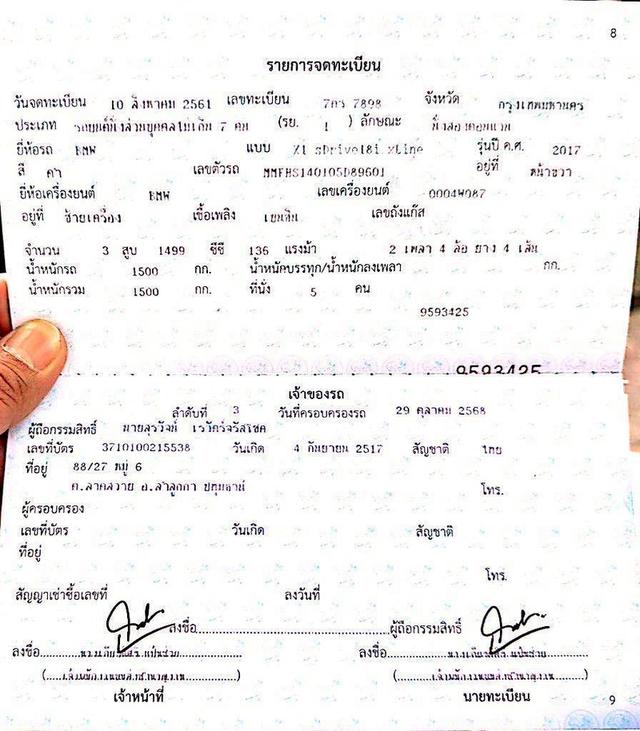 8
รายการจดทะเบียน
วันจดทะเบียน 10 สิงหาคม 2561 เลขทะเบียน 7กร 7898 จังหวัด กรุงเทพมหานคร
ประเภท รถยนต์นั่งส่วนบุคคลไม่เกิน 7 คน (รย. 1 ) ลักษณะ นั่งสองตอนแวน
ยี่ห้อรถ BMW แบบ X1 sDrive18i xLine รุ่นปี ค.ศ. 2017
สี ดำ เลขตัวรถ MMFHS140105D89601 อยู่ที่ หน้าขวา
ยี่ห้อเครื่องยนต์ BMW เลขเครื่องยนต์ 0004W087
อยู่ที่ ซ้ายเครื่อง เชื้อเพลิง เบนซิน เลขถังแก๊ส
จำนวน 3 สูบ 1499 ซีซี 136 แรงม้า 2 เพลา 4 ล้อ ยาง 4 เส้น
น้ำหนักรถ 1500 กก. น้ำหนักบรรทุก/น้ำหนักลงเพลา กก.
น้ำหนักรวม 1500 กก. ที่นั่ง 5 คน
9593425
9593425
เจ้าของรถ
ลำดับที่ 3 วันที่ครอบครองรถ 29 ตุลาคม 2568
ผู้ถือกรรมสิทธิ์
เลขที่บัตร 3710100215538 วันเกิด 4 กันยายน 2517 สัญชาติ ไทย
ที่อยู่ 88/27 หมู่ 6
ต.ลาดสวาย อ.ลำลูกกา ปทุมธานี โทร.
ผู้ครอบครอง
เลขที่บัตร วันเกิด สัญชาติ
ที่อยู่
โทร.
สัญญาเช่าซื้อเลขที่ ลงวันที่
ลงชื่อ ผู้ถือกรรมสิทธิ์
ลงชื่อ ลงชื่อ
เจ้าหน้าที่ นายทะเบียน
9